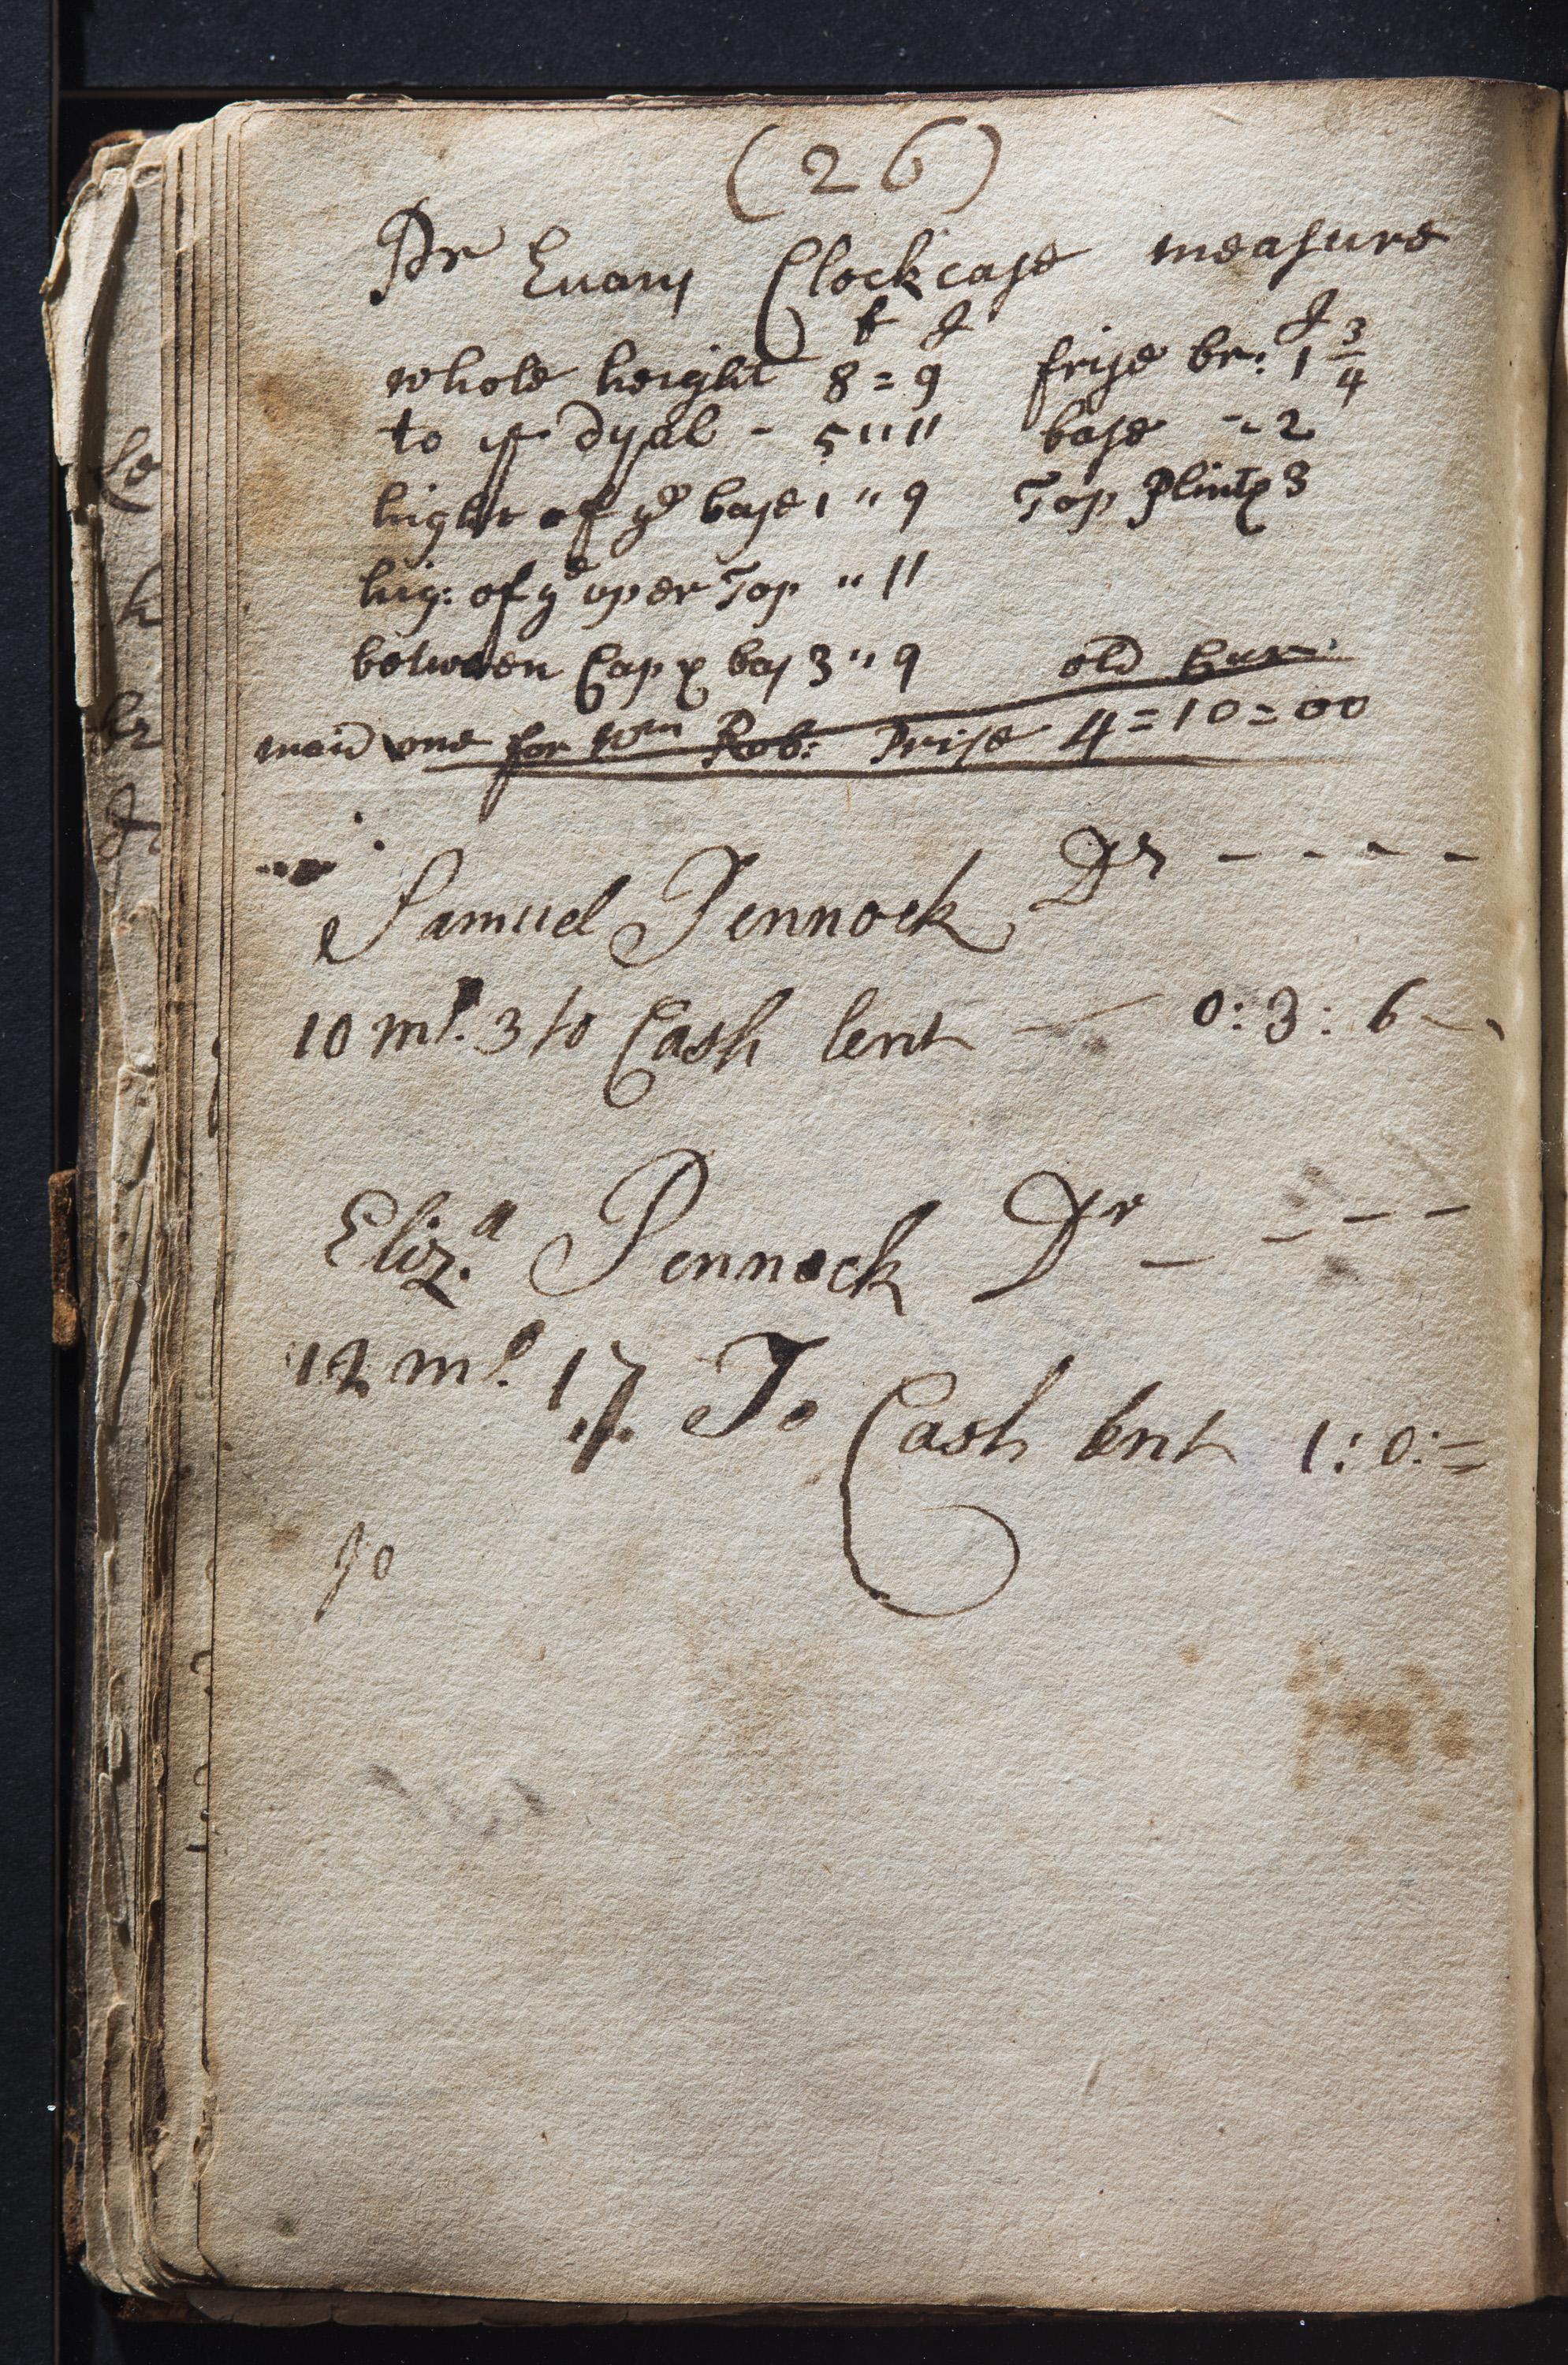 (26)
Dr Evans Clockcase measure
f I I
whole height 8=9 frise br: 1 3/4
to ye dyal - 5 "" base - 2
hight of ye base 1 " 9 Top Plinth 3
hig: of ye uper Top " 11
between Cap & bas 3 " 9 old
maid one for Wm Rob: Prise 4=10=00
Samuel Pennock Dr - - - -
10 mo. 3 to Cash lent - 0: 3: 6
Eliz.a Pennock Dr - - - -
12 mo. 17 To Cash lent 1: 0: =